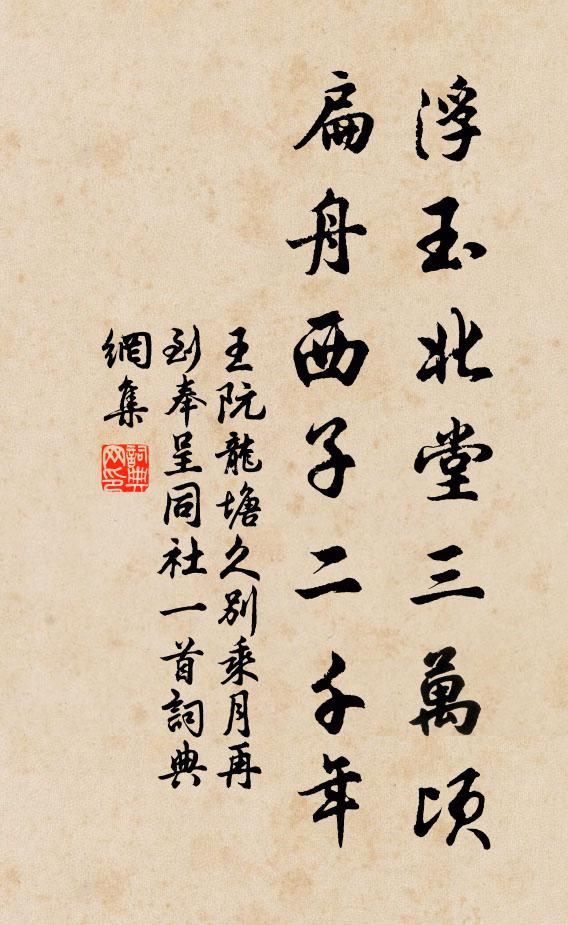 浮玉北堂三萬頃
扁舟西子二千年
王阮龍塘久別乘月再
到奉呈同社一首詞典
網集
詞典
网印